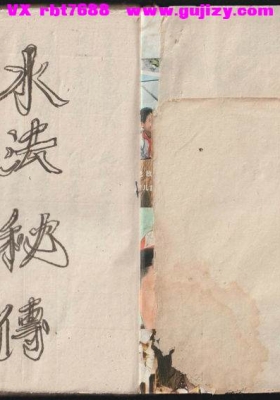 VX rbt7688 www.gujizy.com
水法秘傳